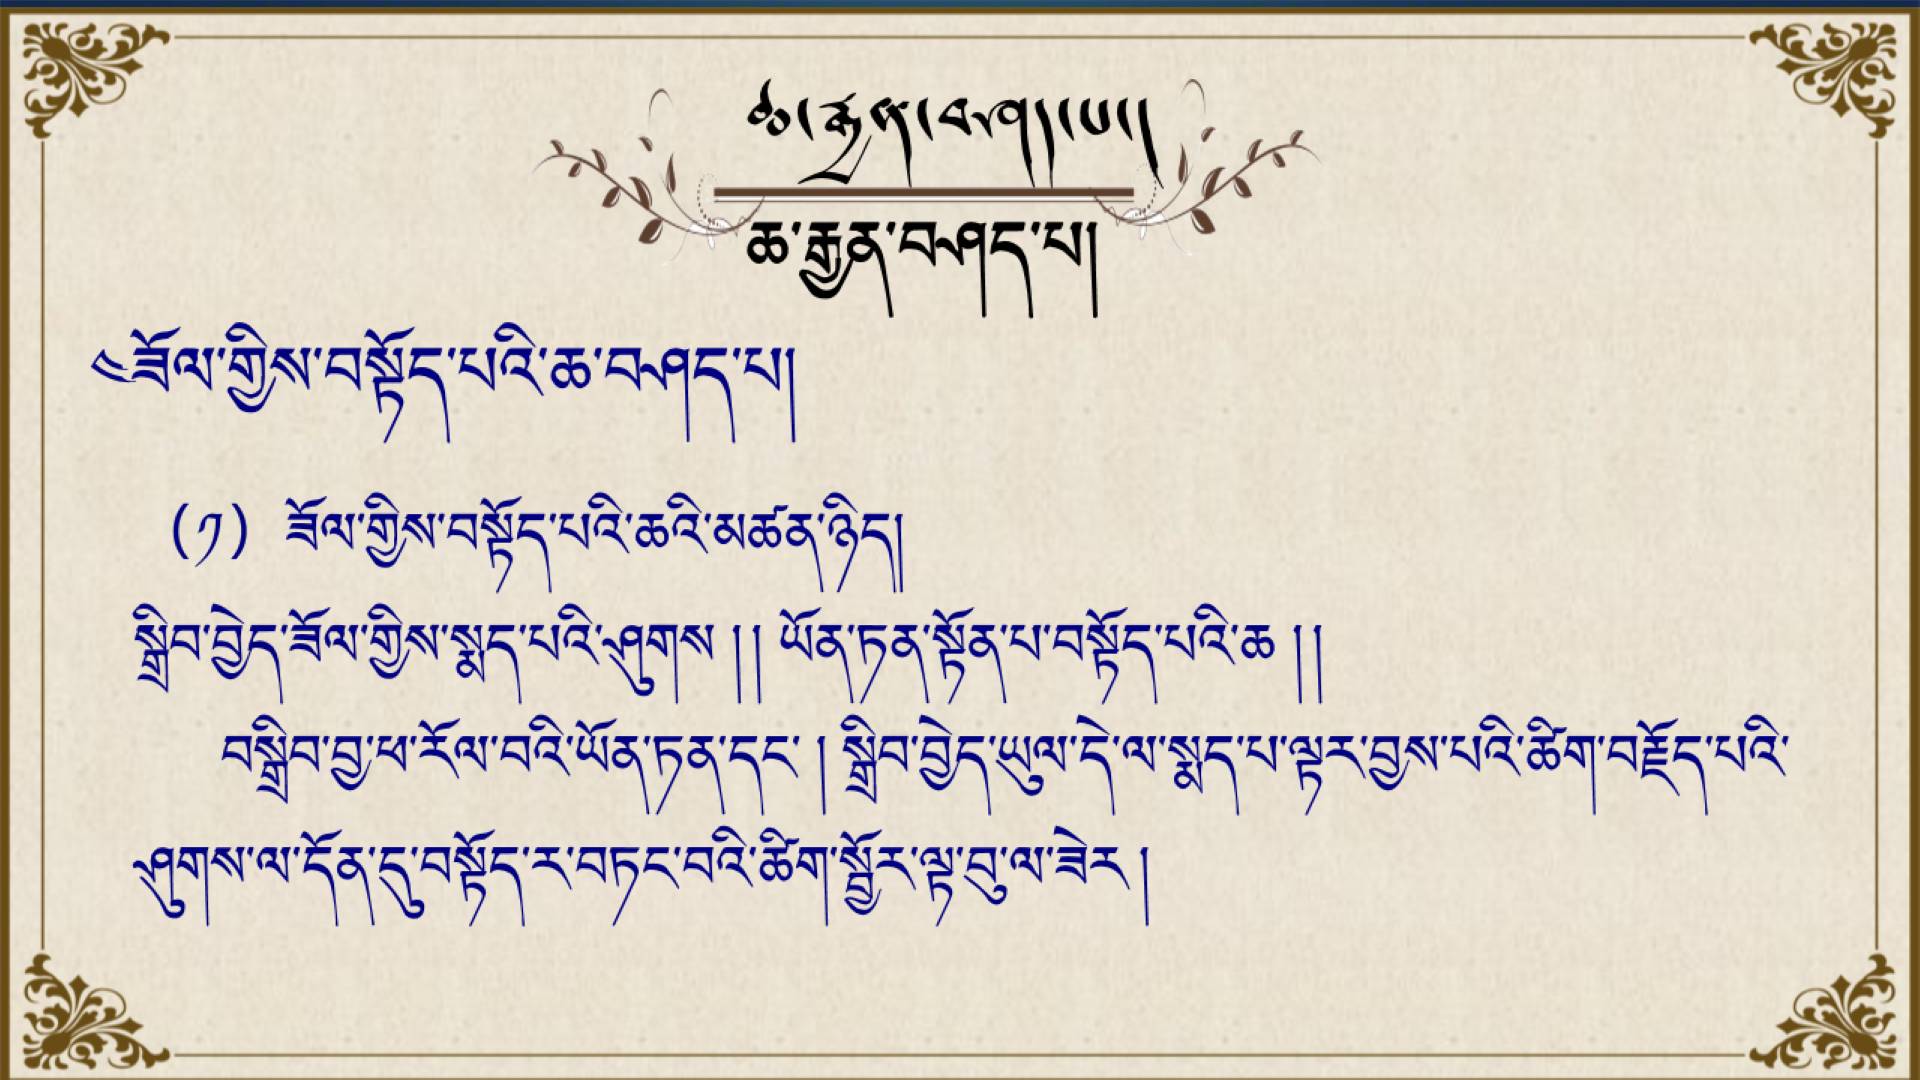 ཆ་རྒྱན་བཤད་པ།
ཆ་རྒྱན་བཤད་པ།
༤ཟོལ་གྱིས་བསྟོད་པའི་ཆ་བཤད་པ།
(༡) ཟོལ་གྱིས་བསྟོད་པའི་ཆའི་མཚན་ཉིད།
སྒྲིབ་བྱེད་ཟོལ་གྱིས་སྨད་པའི་ཤུགས །། ཡོན་ཏན་སྟོན་པ་བསྟོད་པའི་ཆ །།
བསྒྲིབ་བྱ་ཕ་རོལ་བའི་ཡོན་ཏན་དང་ ། སྒྲིབ་བྱེད་ཡུལ་དེ་ལ་སྨད་པ་ལྟར་བྱས་པའི་ཚིག་བརྗོད་པའི་
ཤུགས་ལ་དོན་དུ་བསྟོད་ར་བཏང་བའི་ཚིག་སྦྱོར་ལྟ་བུ་ལ་ཟེར །